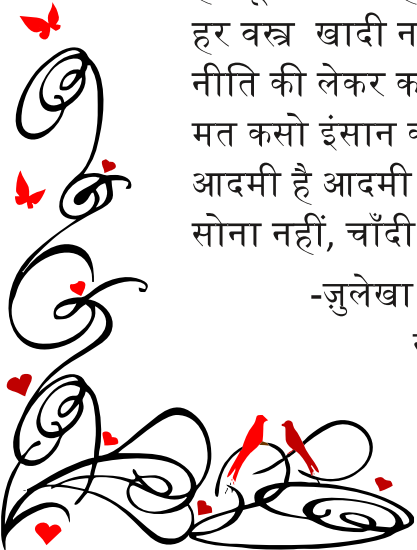 हर वस्त्र खादी
नीति की लेकर
मत कसो इंसान
आदमी है आदमी
सोना नहीं, चाँदी
-ज़ुलेखा